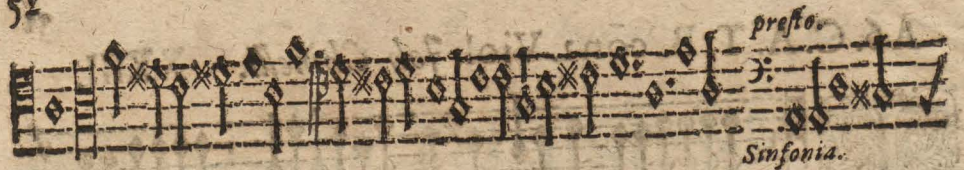 52
preſto.
Sinfonia.